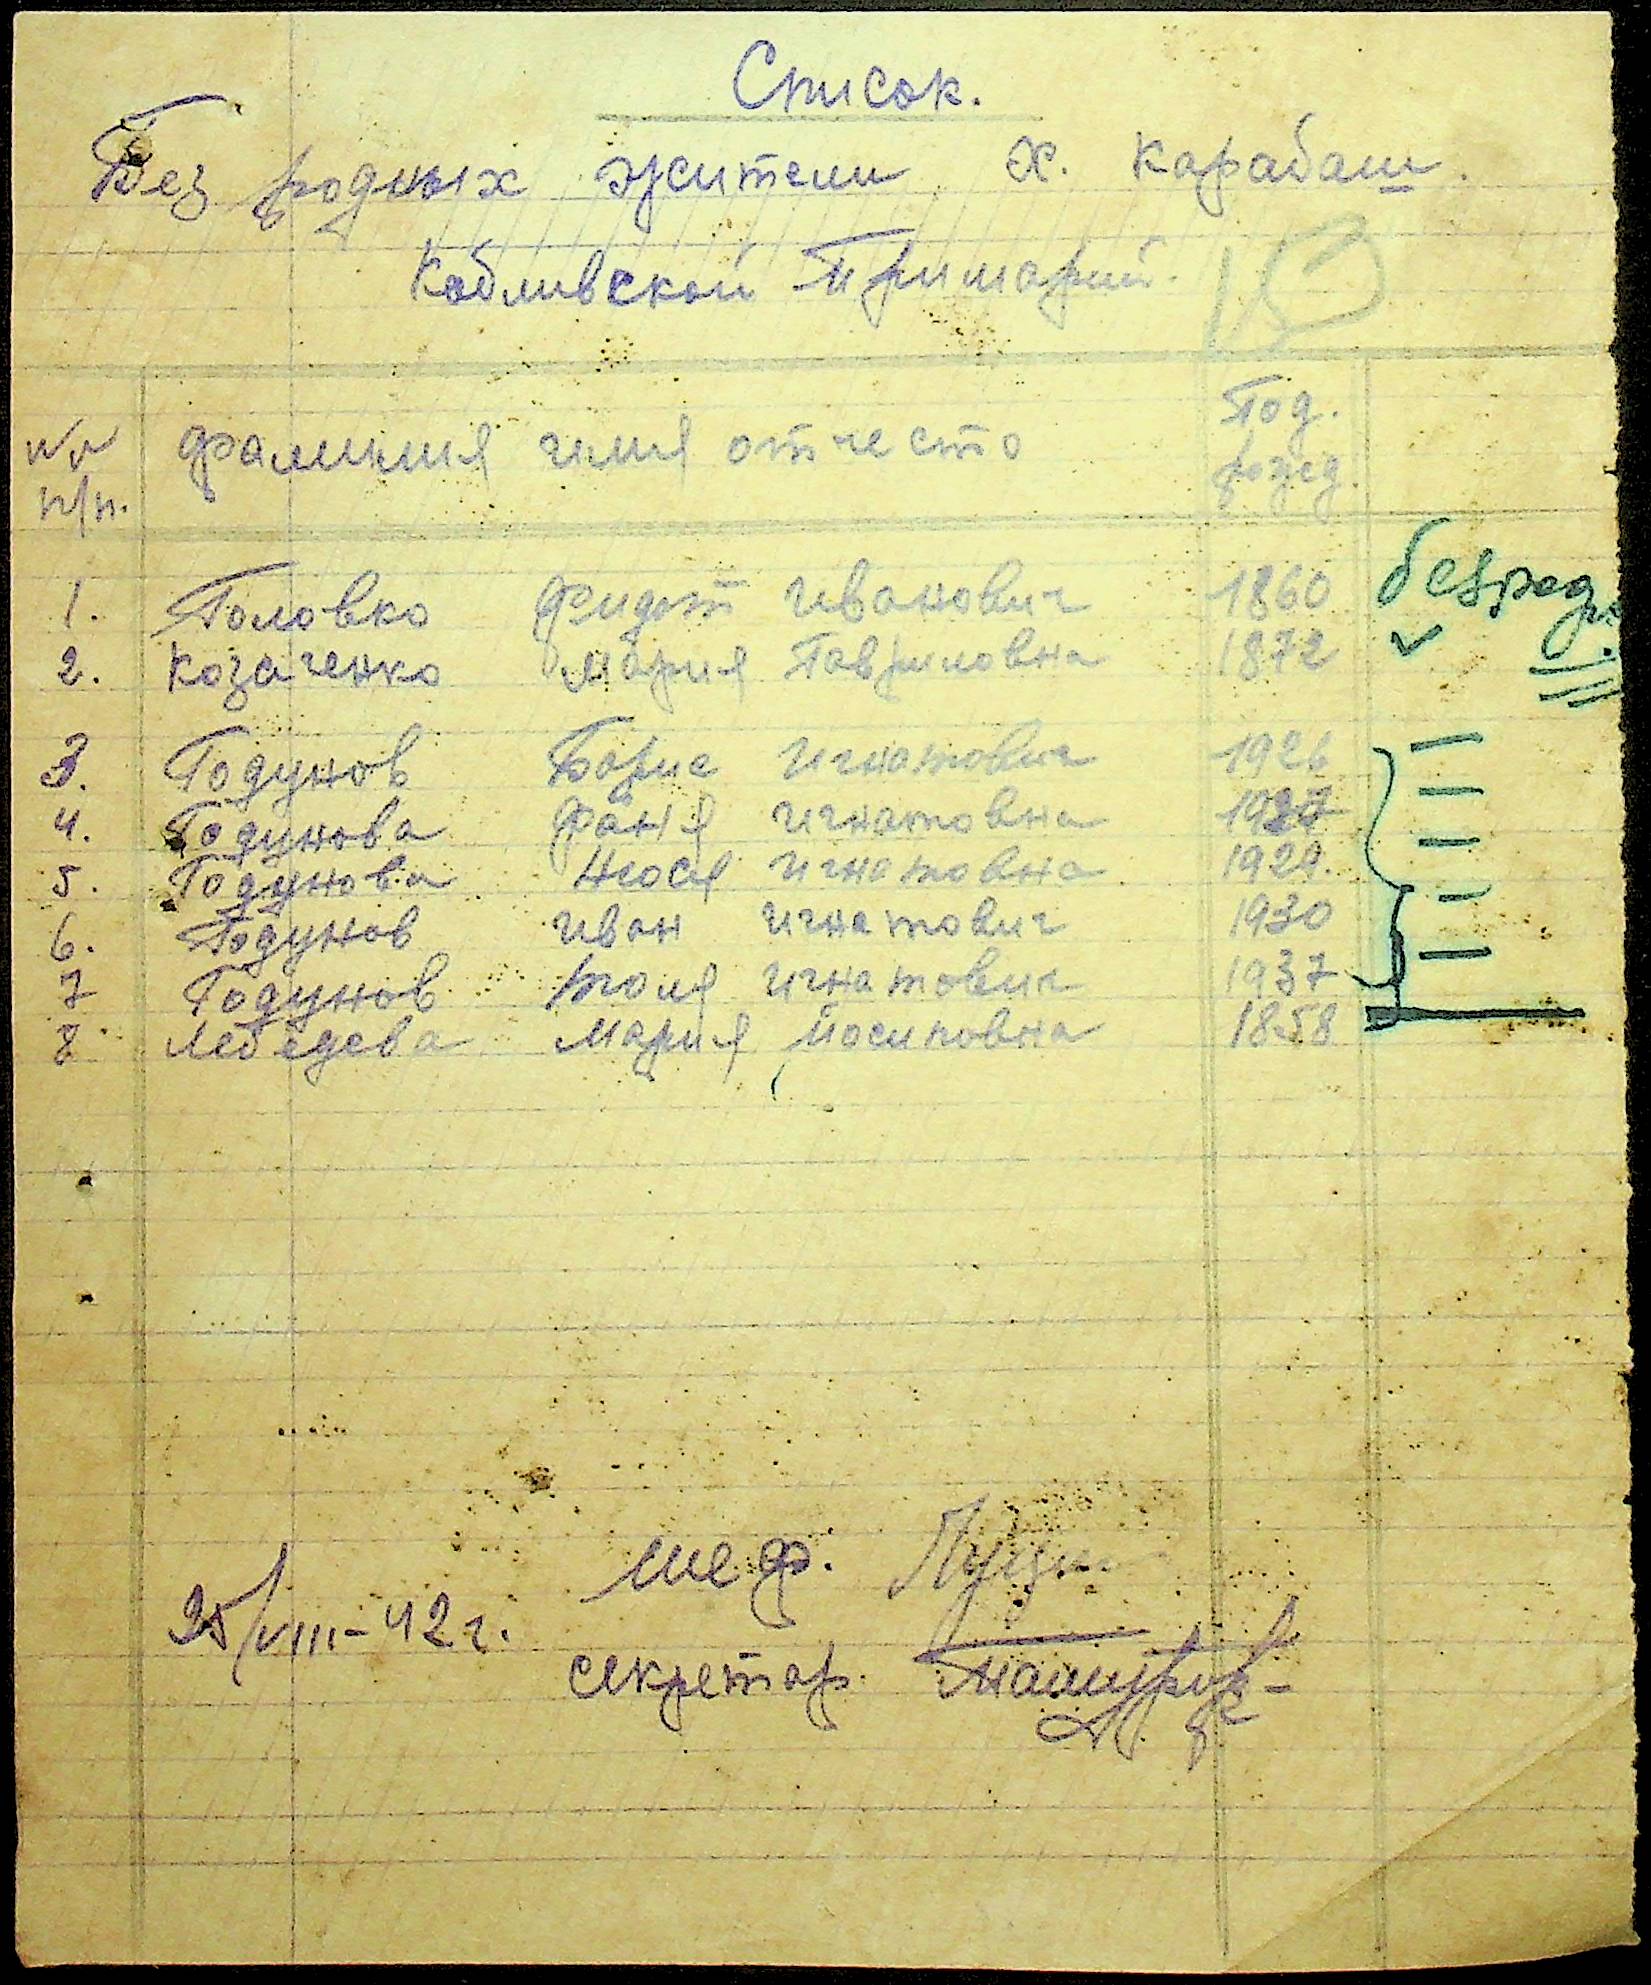 Список.
Без родных жители х. Карабаш.
Кобливской Примарии.
№№ п/п. фамилия имя отчесто Год. рожд.
1. Головко Фидот Иванович 1860 безрод.
2. Козаченко Мария Гавриловна 1872 ✓
3. Годунов Борис Игнатович 1926 —
4. Годунова Фаня Игнатовна 1927 —
5. Годунова Нюся Игнатовна 1929. —
6. Годунов Иван Игнатович 1930 —
7 Годунов Толя Игнатович 1937 —
8. Лебедева Мария Йосиповна 1858
шеф.
25/VIII-42 г.
секретар